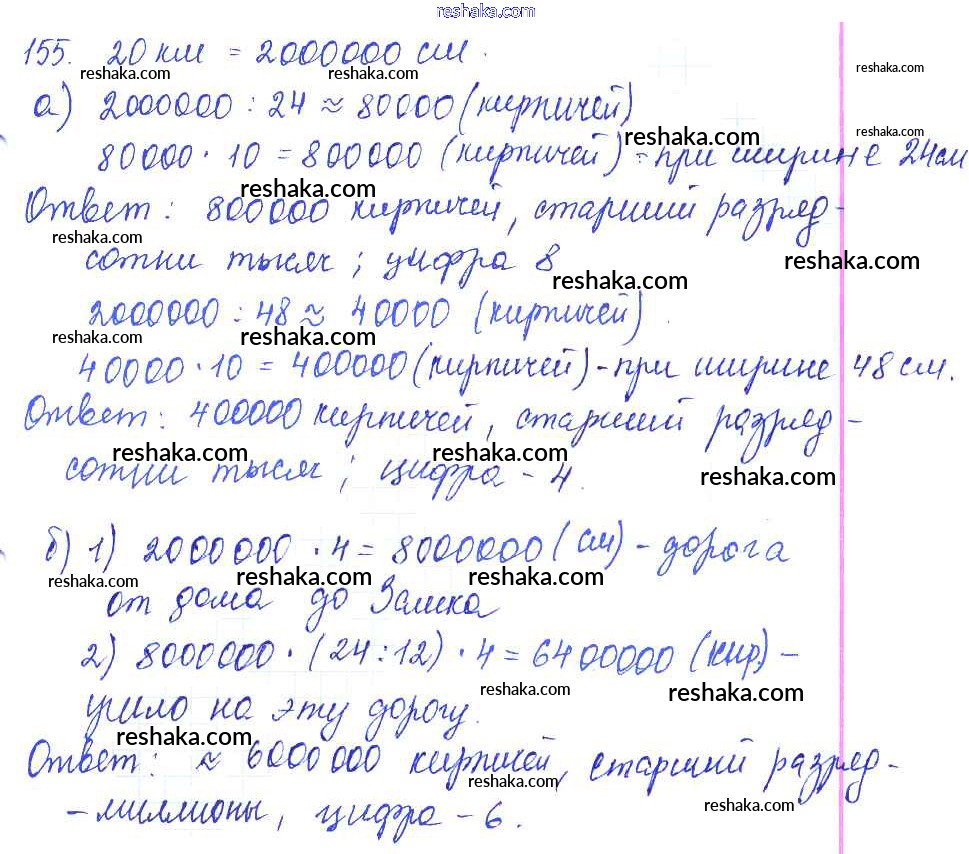 reshaka.com
155. 20 км = 2000000 см.
reshaka.com reshaka.com reshaka.com
а) 2000000 : 24 ≈ 80000 (кирпичей)
reshaka.com reshaka.com
80000 · 10 = 800000 (кирпичей) - при ширине 24см
reshaka.com
Ответ: 800000 кирпичей, старший разряд -
reshaka.com reshaka.com
сотни тысяч; цифра 8
reshaka.com
2000000 : 48 ≈ 40000 (кирпичей).
reshaka.com reshaka.com
40000 · 10 = 400000 (кирпичей) - при ширине 48 см.
Ответ: 400000 кирпичей, старший разряд -
reshaka.com reshaka.com
сотни тысяч; цифра - 4.
reshaka.com
б) 1) 2000000 · 4 = 8000000 (см) - дорога
reshaka.com reshaka.com reshaka.com
от дома до Замка
2) 8000000 · (24 : 12) · 4 = 6400000 (кир.) -
reshaka.com reshaka.com
ушло на эту дорогу.
reshaka.com
Ответ: ≈ 6000000 кирпичей, старший разряд -
reshaka.com reshaka.com
- миллионы, цифра - 6.
reshaka.com